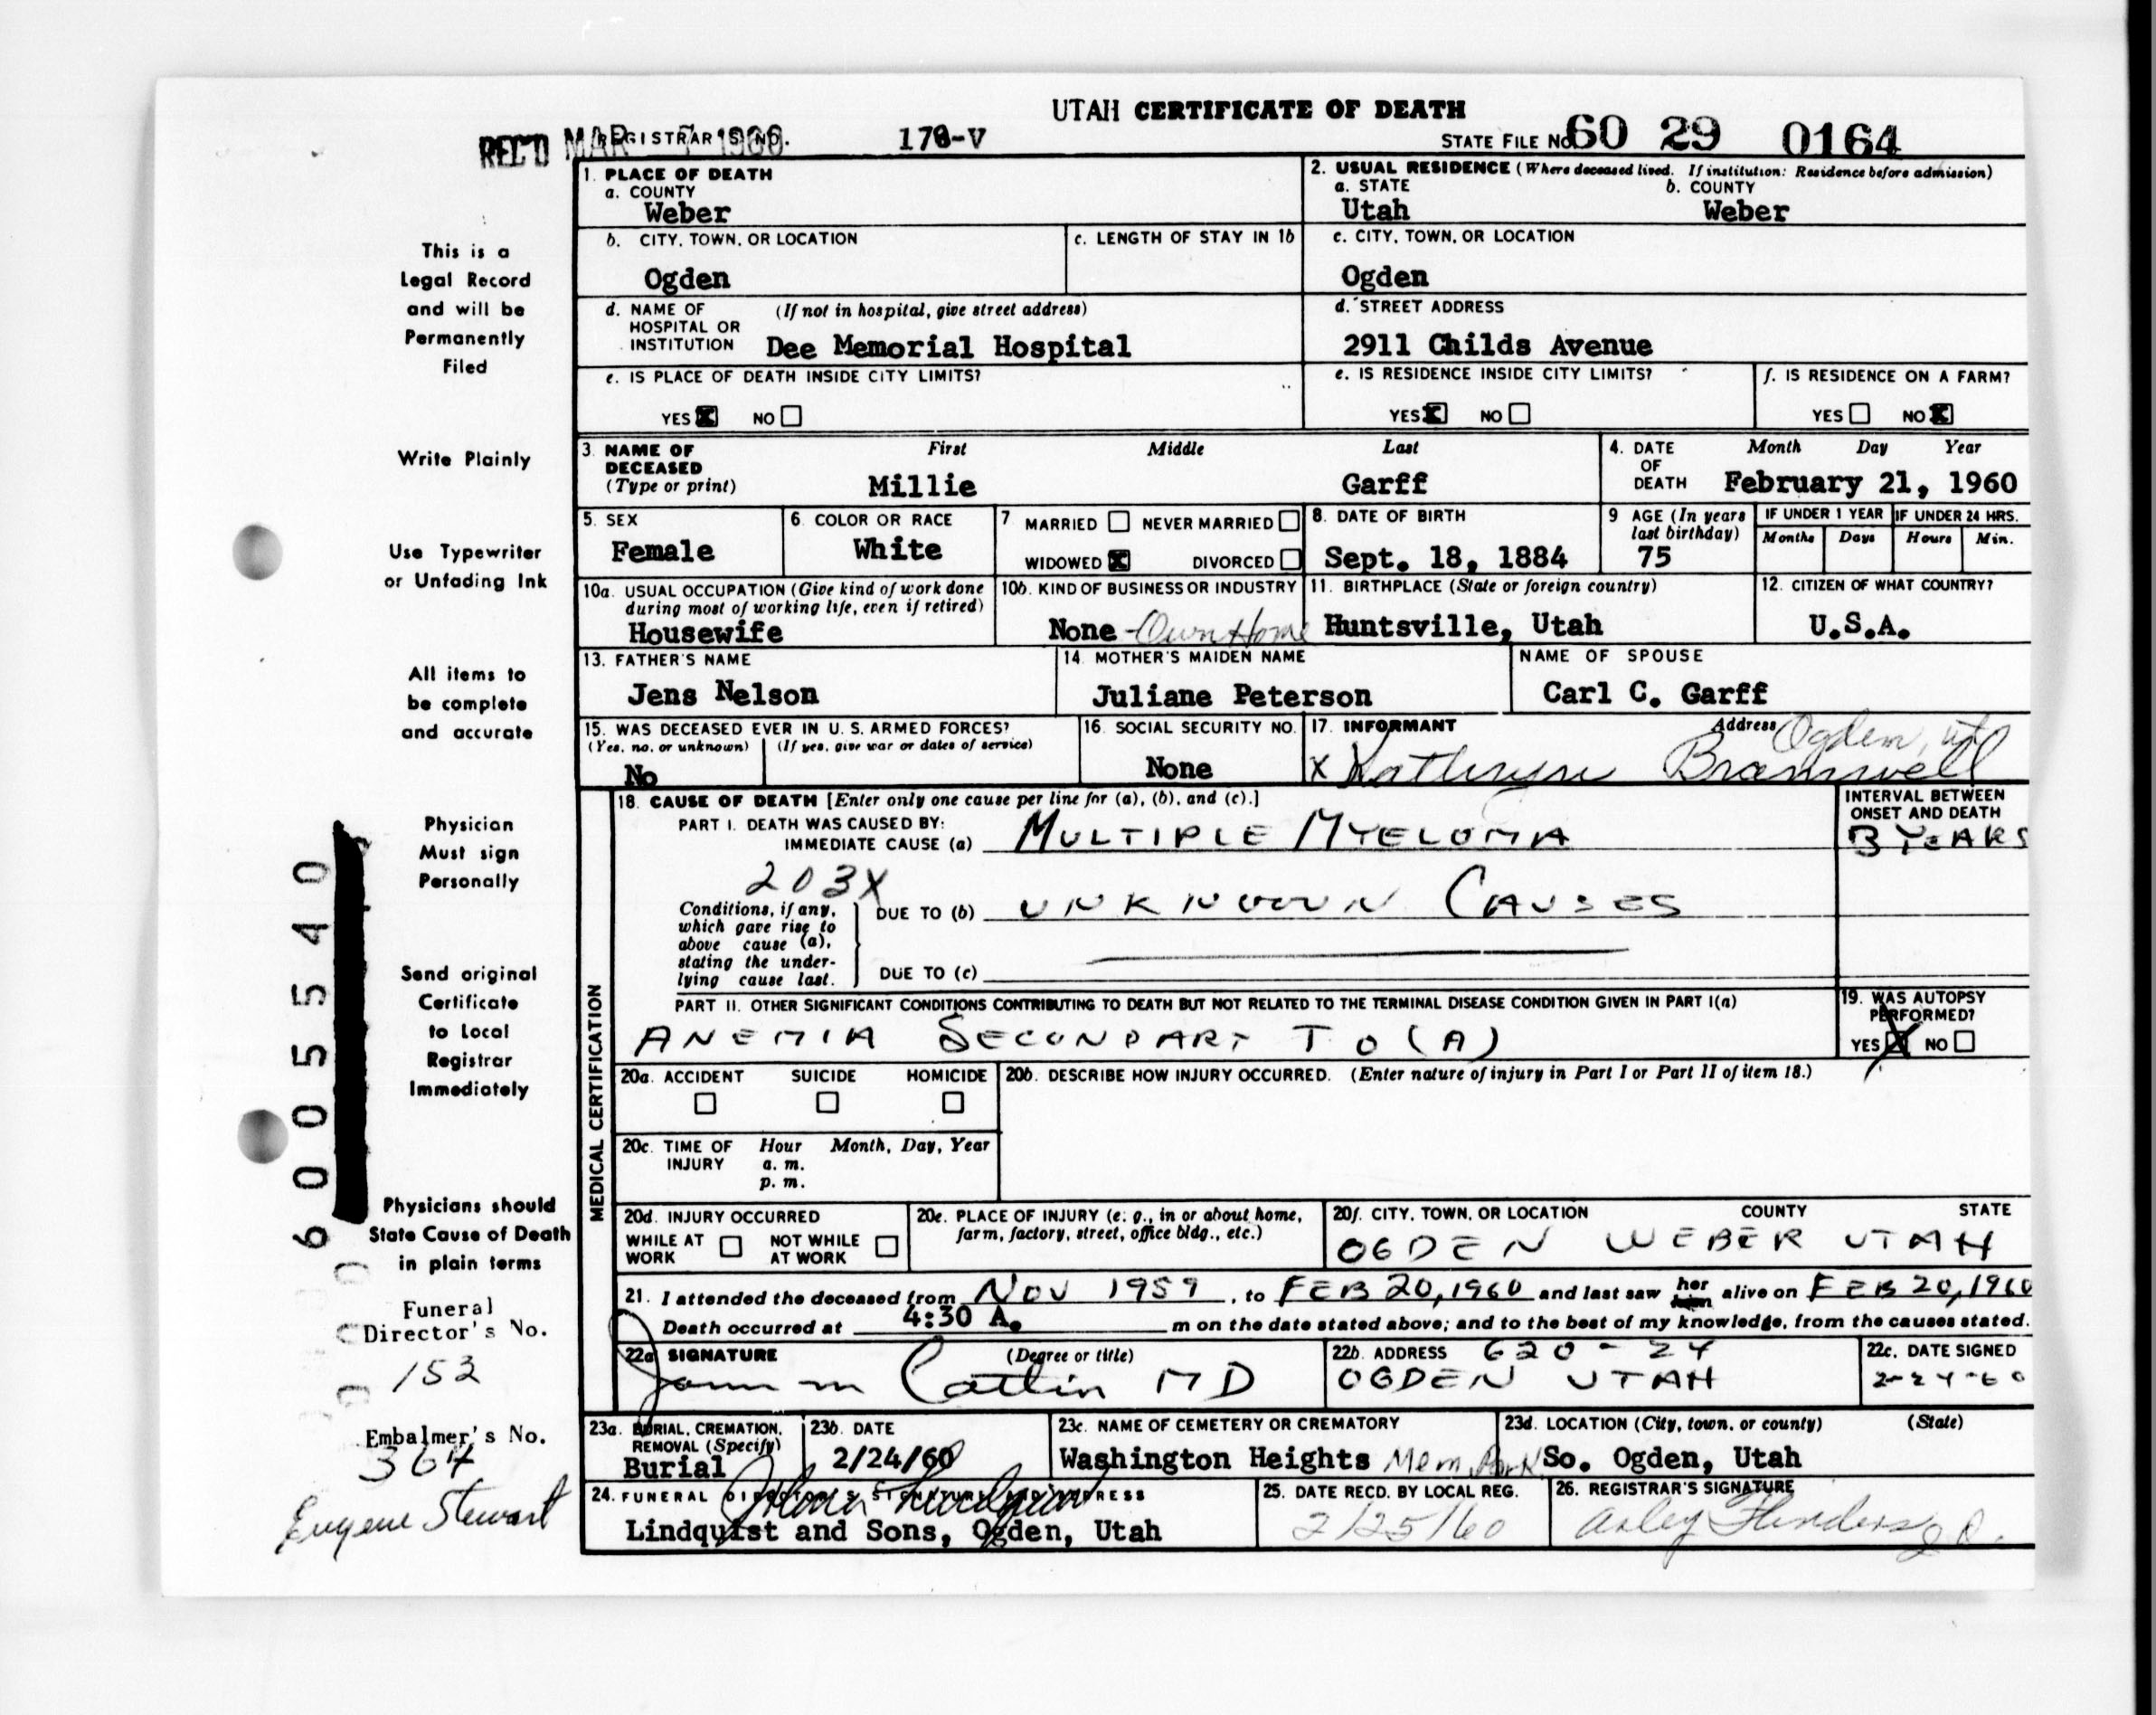 UTAH CERTIFICATE OF DEATH
REC'D MAR 7 1960 REGISTRAR'S NO. 178-V STATE FILE NO. 60 29 0164
This is a
Legal Record
and will be
Permanently
Filed
Write Plainly
Use Typewriter
or Unfading Ink
All items to
be complete
and accurate
Physician
Must sign
Personally
Send original
Certificate
to Local
Registrar
Immediately
Physicians should
State Cause of Death
in plain terms
Funeral
Director's No.
152
Embalmer's No.
364
Eugene Stewart
600 5540
1. PLACE OF DEATH
a. COUNTY
Weber
2. USUAL RESIDENCE (Where deceased lived. If institution: Residence before admission)
a. STATE b. COUNTY
Utah Weber
b. CITY, TOWN, OR LOCATION
Ogden
c. LENGTH OF STAY IN 1b
c. CITY, TOWN, OR LOCATION
Ogden
d. NAME OF (If not in hospital, give street address)
HOSPITAL OR
INSTITUTION Dee Memorial Hospital
d. STREET ADDRESS
2911 Childs Avenue
e. IS PLACE OF DEATH INSIDE CITY LIMITS?
YES X NO
e. IS RESIDENCE INSIDE CITY LIMITS?
YES X NO
f. IS RESIDENCE ON A FARM?
YES NO X
3. NAME OF First Middle Last
DECEASED
(Type or print) Millie Garff
4. DATE Month Day Year
OF
DEATH February 21, 1960
5. SEX
Female
6. COLOR OR RACE
White
7 MARRIED NEVER MARRIED
WIDOWED X DIVORCED
8. DATE OF BIRTH
Sept. 18, 1884
9 AGE (In years
last birthday)
75
IF UNDER 1 YEAR IF UNDER 24 HRS.
Months Days Hours Min.
10a. USUAL OCCUPATION (Give kind of work done
during most of working life, even if retired)
Housewife
10b. KIND OF BUSINESS OR INDUSTRY
None - Own Home
11. BIRTHPLACE (State or foreign country)
Huntsville, Utah
12. CITIZEN OF WHAT COUNTRY?
U.S.A.
13. FATHER'S NAME
Jens Nelson
14. MOTHER'S MAIDEN NAME
Juliane Peterson
NAME OF SPOUSE
Carl C. Garff
15. WAS DECEASED EVER IN U.S. ARMED FORCES?
(Yes, no, or unknown) (If yes, give war or dates of service)
No
16. SOCIAL SECURITY NO.
None
17. INFORMANT Address Ogden, Ut
X Kathryn Bramwell
MEDICAL CERTIFICATION
18. CAUSE OF DEATH [Enter only one cause per line for (a), (b), and (c).]
PART I. DEATH WAS CAUSED BY:
IMMEDIATE CAUSE (a) MULTIPLE MYELOMA
INTERVAL BETWEEN
ONSET AND DEATH
3 YEARS
203X
Conditions, if any,
which gave rise to
above cause (a),
stating the under-
lying cause last.
DUE TO (b) UNKNOWN CAUSES
DUE TO (c)
PART II. OTHER SIGNIFICANT CONDITIONS CONTRIBUTING TO DEATH BUT NOT RELATED TO THE TERMINAL DISEASE CONDITION GIVEN IN PART I(a)
ANEMIA SECONDARY TO (A)
19. WAS AUTOPSY
PERFORMED?
YES X NO
20a. ACCIDENT SUICIDE HOMICIDE
20b. DESCRIBE HOW INJURY OCCURRED. (Enter nature of injury in Part I or Part II of item 18.)
20c. TIME OF Hour Month, Day, Year
INJURY a. m.
p. m.
20d. INJURY OCCURRED
WHILE AT WORK NOT WHILE AT WORK
20e. PLACE OF INJURY (e. g., in or about home,
farm, factory, street, office bldg., etc.)
20f. CITY, TOWN, OR LOCATION COUNTY STATE
OGDEN WEBER UTAH
21. I attended the deceased from NOV 1959, to FEB 20, 1960 and last saw her him alive on FEB 20, 1960
Death occurred at 4:30 A. m on the date stated above; and to the best of my knowledge, from the causes stated.
22a SIGNATURE (Degree or title)
John M Catlin MD
22b. ADDRESS 620 - 24
OGDEN UTAH
22c. DATE SIGNED
2-24-60
23a. BURIAL, CREMATION,
REMOVAL (Specify)
Burial
23b. DATE
2/24/60
23c. NAME OF CEMETERY OR CREMATORY
Washington Heights Mem. Park
23d. LOCATION (City, town, or county) (State)
So. Ogden, Utah
24. FUNERAL DIRECTOR'S SIGNATURE ADDRESS
Lindquist and Sons, Ogden, Utah
25. DATE RECD. BY LOCAL REG.
2/25/60
26. REGISTRAR'S SIGNATURE
Arley Flinders